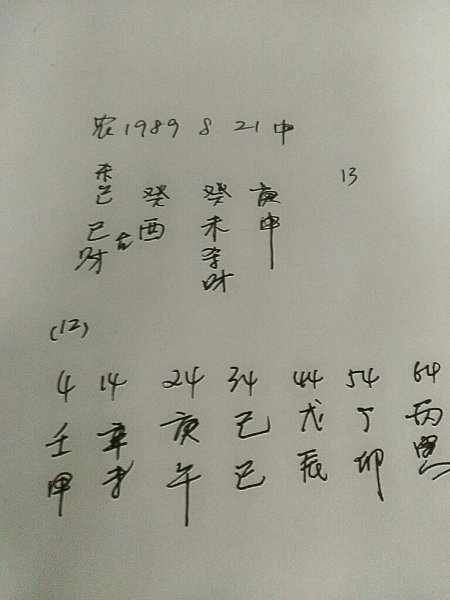 农1989 8 21申
13
杀
己 癸 癸 庚
巳 合 酉 未 申
财 杀
财
(12)
4 14 24 34 44 54 64
壬 辛 庚 己 戊 丁 丙
申 未 午 巳 辰 卯 寅